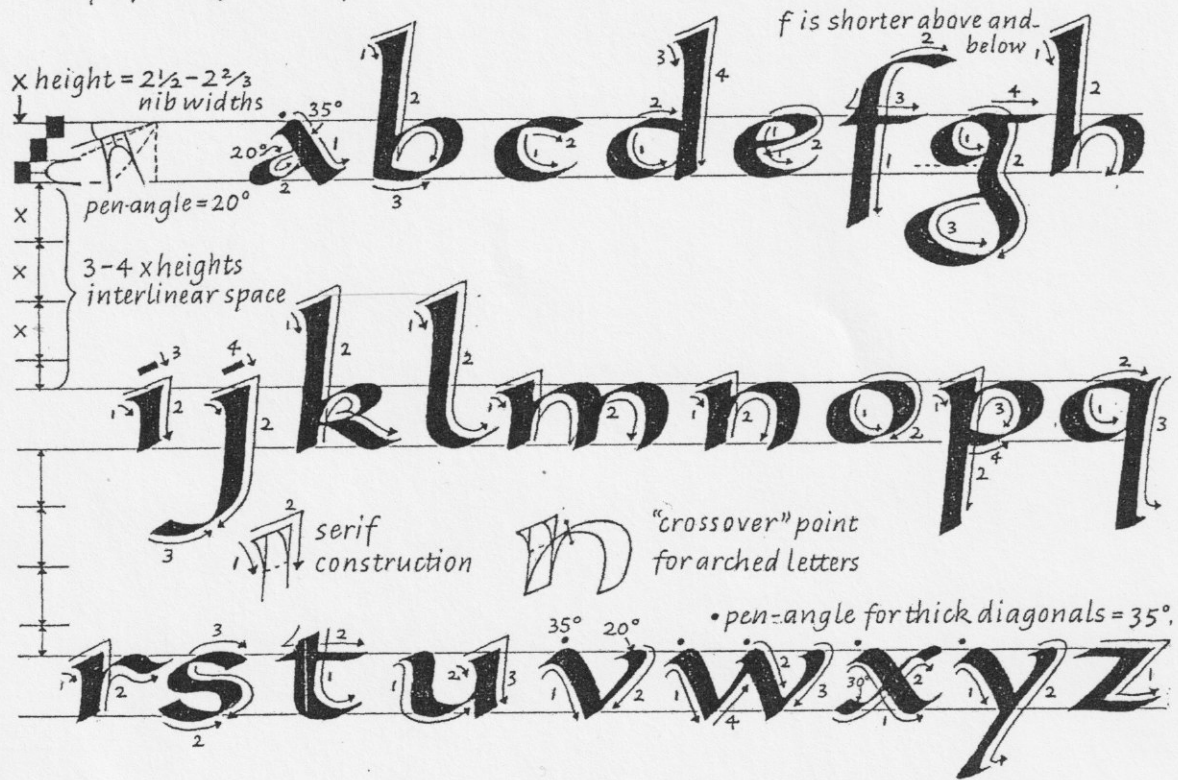 f is shorter above and
below
x height = 2½ – 2⅔
nib widths
35°
20°
a b c d e f g h
pen-angle = 20°
3 – 4 x heights
interlinear space
x
x
x
i j k l m n o p q
serif
construction
"crossover" point
for arched letters
• pen-angle for thick diagonals = 35°.
35° 20°
30°
r s t u v w x y z